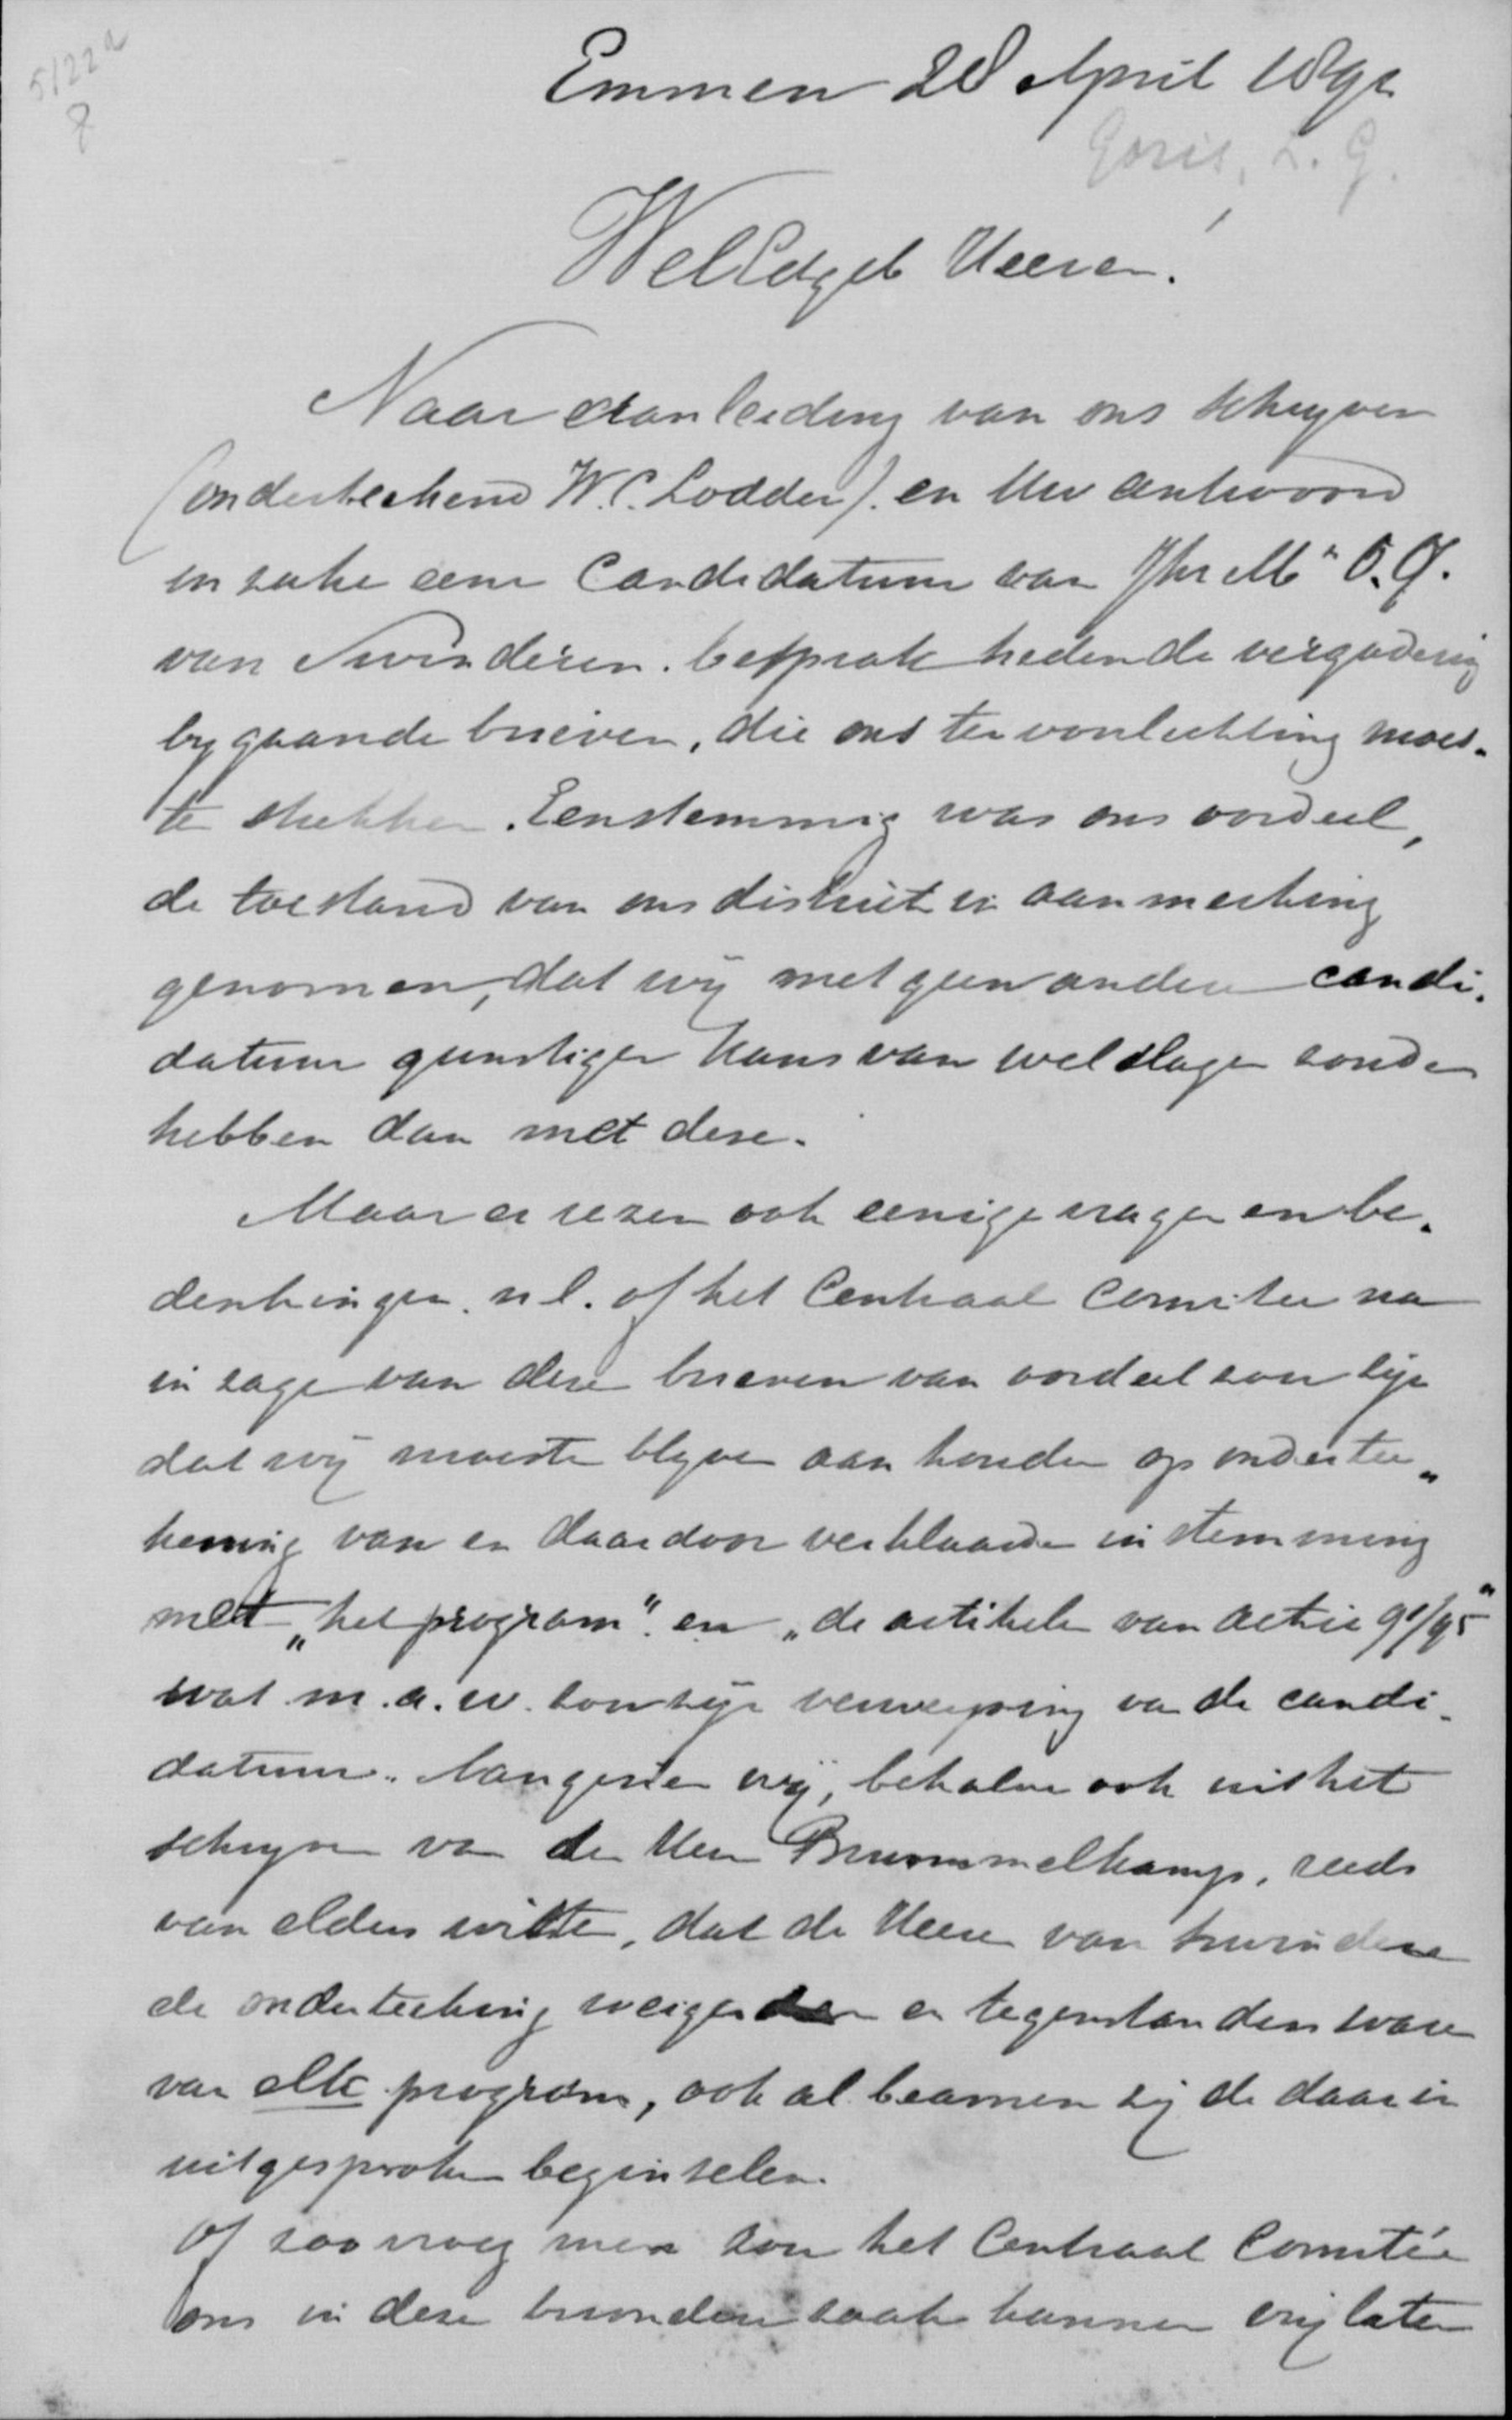 5122a
8
Emmen 28 April 1891
Goris, L. G.
WelEdgeb Heeren!
Naar aanleiding van ons schryven
(onderteekend W. C. Lodder). en Uw antwoord
in zake eene Candidatuur van Jhr Mr O. Q.
van Swinderen. besprak heden de vergadering
bygaande brieven, die ons ter voorlichting moes-
te strekken. Eenstemmig was ons oordeel,
de toestand van ons district in aanmerking
genomen, dat wij met geen andere candi-
datuur gunstiger kans van welslagen zouden
hebben dan met deze.
Maar er rezen ook eenige vragen en be-
denkingen. n l. of het Centraal Comitee na
inzage van deze brieven van oordeel zou zijn
dat wij moeste blyven aanhouden op onderteeͅ
kening van en daardoor verklaarde instemming
met "het program". en "de artikelen van actie 91/95"
wat m. a. w. zou zijn verwerping van de candi-
datuur. Aangezien wij, behalve ook uit het
schryven van den Heer Brummelkamp, reeds
van elders wisten, dat de Heeren van Swinderen
de onderteekening weigerden en tegenstanders waren
van elk program, ook al beamen zij de daarin
uitgesproken beginselen.
Of zoo vroeg men zou het Centraal Comitée
ons in deze bizondere zaak kunnen vrij laten